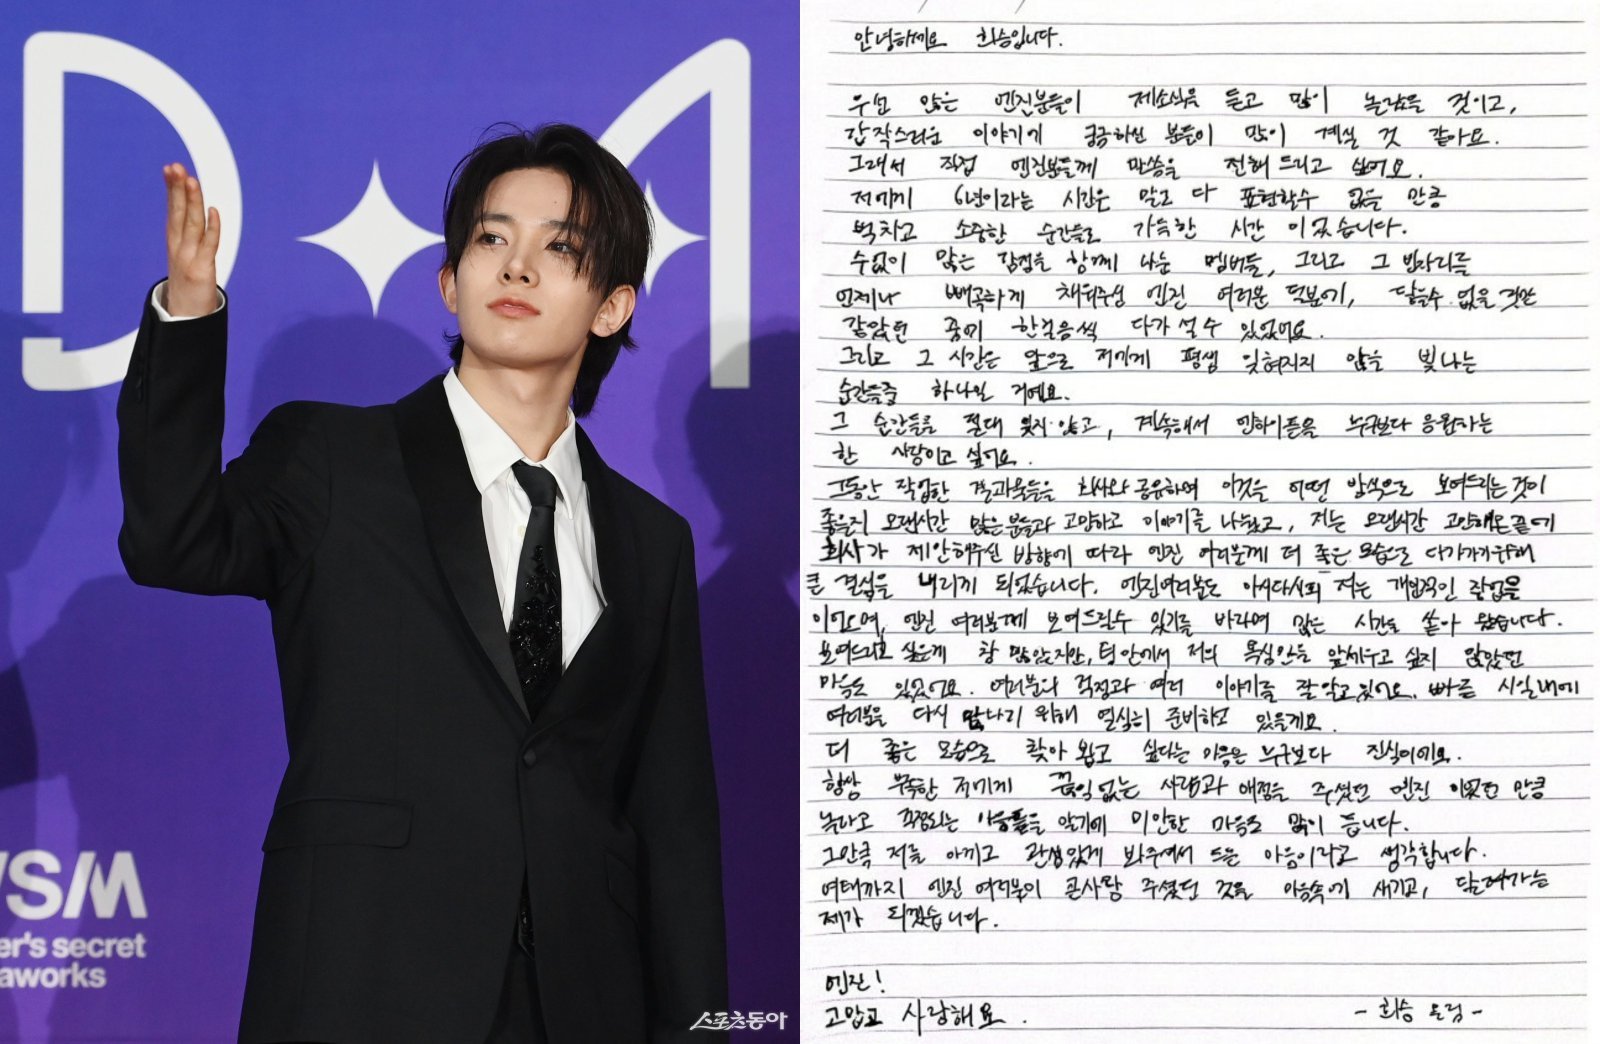 D A
WSM
er's secret
aworks
스포츠동아
안녕하세요 희승입니다.
우선 많은 엔진분들이 제소식을 듣고 많이 놀랐을 것이고,
갑작스러운 이야기에 궁금하신 분들이 많이 계실 것 같아요.
그래서 직접 엔진분들께 말씀을 전해 드리고 싶어요.
저에게 6년이라는 시간은 말로 다 표현할수 없을 만큼
벅차고 소중한 순간들로 가득한 시간 이었습니다.
수없이 많은 감정을 함께 나눈 멤버들, 그리고 그 빈자리를
언제나 빼곡하게 채워주신 엔진 여러분 덕분에, 닿을수 없을 것만
같았던 꿈에 한걸음씩 다가 설 수 있었어요.
그리고 그 시간은 앞으로 저에게 평생 잊혀지지 않을 빛나는
순간들중 하나일 거예요.
그 순간들을 절대 잊지 않고, 계속해서 엔하이픈을 누구보다 응원하는
한 사람이고 싶어요.
그동안 작업한 결과물들을 회사와 공유하며 이것을 어떤 방식으로 보여드리는것이
좋을지 오랜시간 많은분들과 고민하고 이야기를 나눴고, 저는 오랜시간 고민해온끝에
회사가 제안해주신 방향에 따라 엔진 여러분께 더 좋은 모습으로 다가가기위해
큰 결심을 내리게 되었습니다. 엔진여러분도 아시다시피 저는 개인적인 작업을
이어오며, 엔진 여러분께 보여드릴수 있기를 바라며 많은 시간을 쏟아 왔습니다.
보여드리고 싶은게 참 많았지만, 팀 안에서 저의 욕심만을 앞세우고 싶지 않았던
마음도 있었어요. 여러분의 걱정과 여러 이야기를 잘 알고있어요. 빠른 시일내에
여러분을 다시 만나기 위해 열심히 준비하고 있을게요.
더 좋은 모습으로 찾아 뵙고 싶다는 마음은 누구보다 진심이에요.
항상 부족한 저에게 끊임없는 사랑과 애정을 주셨던 엔진 이었던 만큼
놀라고 걱정되는 마음들을 알기에 미안한 마음도 많이 듭니다.
그만큼 저를 아끼고 관심있게 봐주셔서 드는 마음이라고 생각합니다.
여태까지 엔진 여러분이 큰사랑 주셨던 것을 마음속에 새기고, 달려가는
제가 되겠습니다.
엔진!
고맙고 사랑해요.
- 희승 드림 -